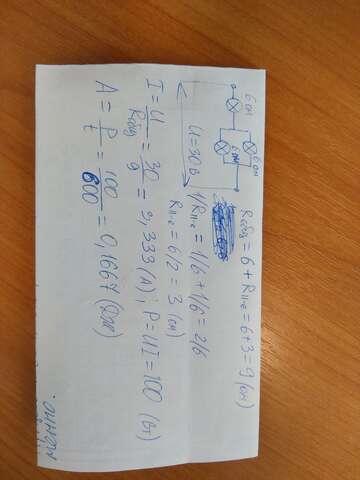 6 Ом
6 Ом
6 Ом
U=30 В
Rобщ = 6 + R||-е = 6+3 = 9 (Ом)
1/R||-е = 1/6 + 1/6 = 2/6
R||-е = 6/2 = 3 (Ом)
I = U/Rобщ = 30/9 = 3,333 (А); P = UI = 100 (Вт)
A = P/t = 100/600 = 0,1667 (Дж)